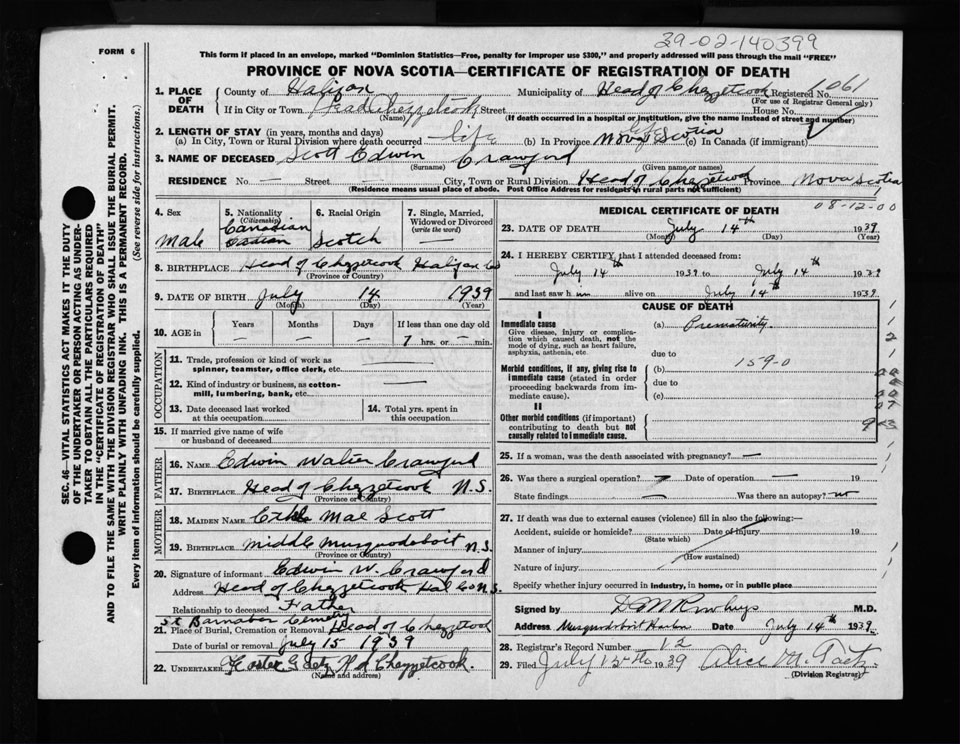 39-02-140399
FORM 6
This form if placed in an envelope, marked "Dominion Statistics—Free, penalty for improper use $300," and properly addressed will pass through the mail "FREE"
PROVINCE OF NOVA SCOTIA—CERTIFICATE OF REGISTRATION OF DEATH
1. PLACE OF DEATH
County of Halifax Municipality of Head of Chezzetcook Registered No. 061
(For use of Registrar General only)
If in City or Town Head Chezzetcook Street House No.
(Name) (If death occurred in a hospital or institution, give the name instead of street and number)
2. LENGTH OF STAY (in years, months and days)
(a) In City, Town or Rural Division where death occurred life (b) In Province life Nova Scotia (c) In Canada (if immigrant)
3. NAME OF DECEASED Scott Edwin Crawford
(Surname) (Given name or names)
RESIDENCE No. — Street — City, Town or Rural Division Head of Chezzetcook Province Nova Scotia
(Residence means usual place of abode. Post Office Address for residents in rural parts not sufficient)
SEC. 46—VITAL STATISTICS ACT MAKES IT THE DUTY
OF THE UNDERTAKER OR PERSON ACTING AS UNDER-
TAKER TO OBTAIN ALL THE PARTICULARS REQUIRED
IN THE "CERTIFICATE OF REGISTRATION OF DEATH"
AND TO FILE THE SAME WITH THE DIVISION REGISTRAR WHO SHALL ISSUE THE BURIAL PERMIT.
WRITE PLAINLY WITH UNFADING INK. THIS IS A PERMANENT RECORD.
Every item of information should be carefully supplied. (See reverse side for instructions.)
4. Sex
Male
5. Nationality
(Citizenship)
Canadian
6. Racial Origin
Scotch
7. Single, Married,
Widowed or Divorced
(write the word)
—
8. BIRTHPLACE Head of Chezzetcook Halifax Co
(Province or Country)
9. DATE OF BIRTH July 14 1939
(Month) (Day) (Year)
10. AGE in
Years Months Days If less than one day old
— — — 7 hrs. or — min.
OCCUPATION
11. Trade, profession or kind of work as
spinner, teamster, office clerk, etc.
12. Kind of industry or business, as cotton-
mill, lumbering, bank, etc.
13. Date deceased last worked
at this occupation
14. Total yrs. spent in
this occupation
15. If married give name of wife
or husband of deceased
FATHER
16. NAME Edwin Walter Crawford
17. BIRTHPLACE Head of Chezzetcook N.S.
(Province or Country)
MOTHER
18. MAIDEN NAME Mae Scott
19. BIRTHPLACE Middle Musquodoboit N.S.
(Province or Country)
20. Signature of informant Edwin W. Crawford
Address Head of Chezzetcook Hal Co N.S.
Relationship to deceased Father
St Barnabas Cemetery
21. Place of Burial, Cremation or Removal Head of Chezzetcook
Date of burial or removal July 15 1939
22. UNDERTAKER Chezzetcook.
(Name and address)
MEDICAL CERTIFICATE OF DEATH
08-12-00
23. DATE OF DEATH July 14th 1939
(Month) (Day) (Year)
24. I HEREBY CERTIFY that I attended deceased from:
July 14th 1939 to July 14th 1939
and last saw h im alive on July 14th 1939.
CAUSE OF DEATH
I
Immediate cause
Give disease, injury or complica-
tion which caused death, not the
mode of dying, such as heart failure,
asphyxia, asthenia, etc.
(a) Prematurity.
due to
Morbid conditions, if any, giving rise to
immediate cause (stated in order
proceeding backwards from im-
mediate cause).
(b) 159-0
due to
(c)
II
Other morbid conditions (if important)
contributing to death but not
causally related to immediate cause.
25. If a woman, was the death associated with pregnancy? —
26. Was there a surgical operation? Date of operation —
State findings — Was there an autopsy? no
27. If death was due to external causes (violence) fill in also the following:—
Accident, suicide or homicide? Date of injury 19
(State which)
Manner of injury
(How sustained)
Nature of injury
Specify whether injury occurred in industry, in home, or in public place
Signed by M.D.
Address Musquodoboit Harbor Date July 14th 1939.
28. Registrar's Record Number 12
29. Filed July 15th 1939
(Division Registrar)